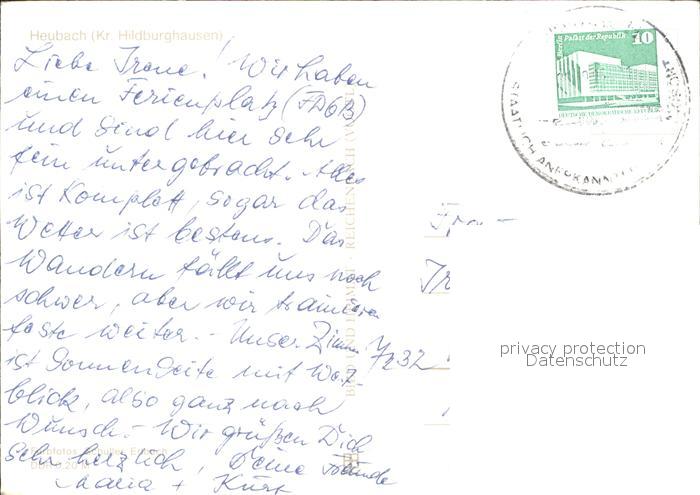 Heubach (Kr. Hildburghausen)
Liebe Irene! Wir haben
einen Ferienplatz (FDGB)
und sind hier sehr
fein untergebracht. Alles
ist komplett, sogar das
Wetter ist bestens. Das
Wandern fällt uns noch
schwer, aber wir trainieren
feste weiter. - Unser Zimmer 7/232
ist Sonnenseite mit
blick, also ganz nach
Wunsch. - Wir grüßen Dich
sehr herzlich, Deine Freunde
Maria + Kurt
Berlin Palast der Republik
10
DEUTSCHE DEMOKRATISCHE REPUBLIK
STAATLICH ANERKANNTER
Frau
Ir
privacy protection
Datenschutz